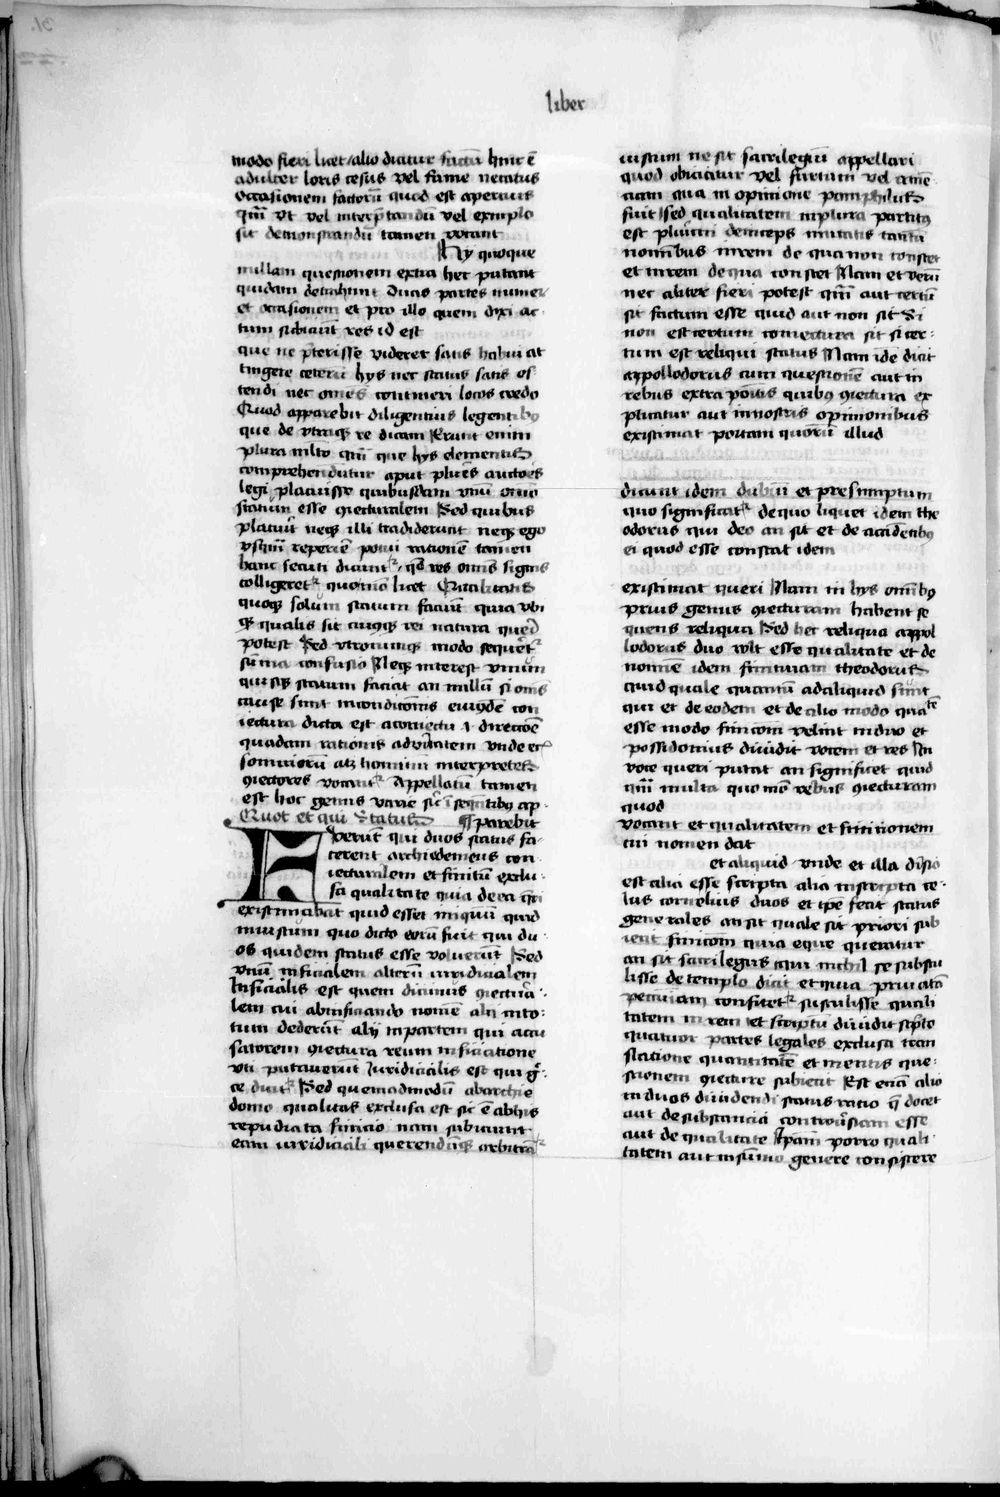 liber
modo fieri licet / alio dicitur factū hinc ē
adulter loris cesus vel fame necatus
occasionem factorū quod est apertius
qm̄ vt vel interp̄tandū vel exemplo
sit demonstrandū tamen vocant
Hy quoque
nullam questionem extra hec putant
quidam detrahunt duas partes numer
et occasionem et pro illo quem dixi ac
tum subiciūt res id est
que ne p̄terisse viderer satis habui at
tingere ceterū hys nec status satis os
tendi nec om̄es contineri locos credo
Quod apparebit diligentius legentibꝰ
que de vtraqꝫ re dicam Erunt enim
plura mlto qm̄ que hys elementis
comprehenduntur aput plures auctores
legi placuisse quibusdam vnū om̄io
statum esse ꝯiecturalem Sed quibus
placuit̄ neqꝫ illi tradiderunt neqꝫ ego
vsqm̄ reperire potui rationē tamen
hanc secuti dicunt̄ qd̄ res omis signis
colligeret̄ quomō licet Qualitatis
quoqꝫ solum statum faciūt quia vbi
qꝫ qualis sit cuiusqꝫ rei natura querī
potest Sed vtrumqꝫ modo sequet̄
suma confusio Neqꝫ interest vnum
quisqꝫ statum faciat an nullū si om̄s
cause sunt ꝯnditionis eiusdē con
iectura dicta est a coniectu .i. directiōe
quadam rationis ad v̄itatem vnde et
somniorū atqꝫ hominū interpretes
ꝯiectores vocant̄ Appellatū tamen
est hoc genus varie sic ī seqn̄tibꝰ ap
Quot et qui status ¶ parebit
Fverunt qui duos status fa
cerent archedemeus con
iecturalem et finitiū exclu
sa qualitate quia de ea
existimabat quid esset iniquū quid
iniustum quo dicto eorū fuit qui du
os quidem status esse voluerunt Sed
vnū inficialem alterū iuridicialem
Inficialis est quem dicimus ꝯiectura
lem cui ab inficiando nomē alii in to
tum dederūt alij in partem qui accu
satorem ꝯiectura reum inficiatione
vti putauerūt Juridicialis est qui g̃
ce dicit̄ Sed quemadmodū ab archie
domo qualitas exclusa est sic ē ab hiis
repudiata finicio nam subiciunt
eam iuridiciali querendūqꝫ arbitrant̄
iustum ne sit sacrilegiū appellari
quod obicitur vel furtum vel amē
ciam qua in opinione pamphilus
fuit sed qualitatem in plura partitꝰ
est plurimi deinceps mutatis tantū
nominbus in rem de qua non constet
et in rem de qua constet Nam et verū
nec aliter fieri potest qm̄ aut certū
sit factum esse quid aut non sit Si
non est certum coniectura sit si cer
tum est reliqui status Nam idē dicit
appollodorus cum questionē aut in
rebus extra positis quibus ꝯiectura ex
plicatur aut in nostris opinionibus
existimat positam quorū illud
dicunt idem dubiū et presumptum
quo significat̄ de quo liquet idem the
odorus qui deo an sit et de accidentibꝰ
ei quod esse constat idem
existimat queri Nam in hys om̄ibꝰ
prius genus ꝯiecturam habent se
quens reliqua Sed hec reliqua appol
lodorus duo vult esse qualitate et de
nomīē idem finituram theodorus
quid quale quantū ad aliquid sunt
qui et de eodem et de alio modo qualitatē
esse modo finicoīm velint in duo et
possidonius diuidit vocem et res In
voce queri putat an significet quid
qm̄ multa quo mō rebus ꝯiecturam
quod
vocant et qualitatem et finitionem
cui nomen dat
et aliquid vnde et illa diuisio
est alia esse scripta alia inscripta ce
lus cornelius duos et ipē fecit status
generales an sit quale sit priori sub
iecit finicoīm quia eque queratur
an sit sacrilegus qui nichil se subtu
lisse de templo dicit et quia priuatā
pecuniam confitet̄ sustulisse quali
tatem in rem et scriptū diuidit scripto
quatuor partes legales exclusa tran
slatione quantitatē et mentis que
stionem ꝯiecture subiecit Est eciā alio
in duos diuidendi status ratio q̄ docet
aut de substancia controūsiam esse
aut de qualitate Ipam porro quali
tatem aut in sūmo genere consistere